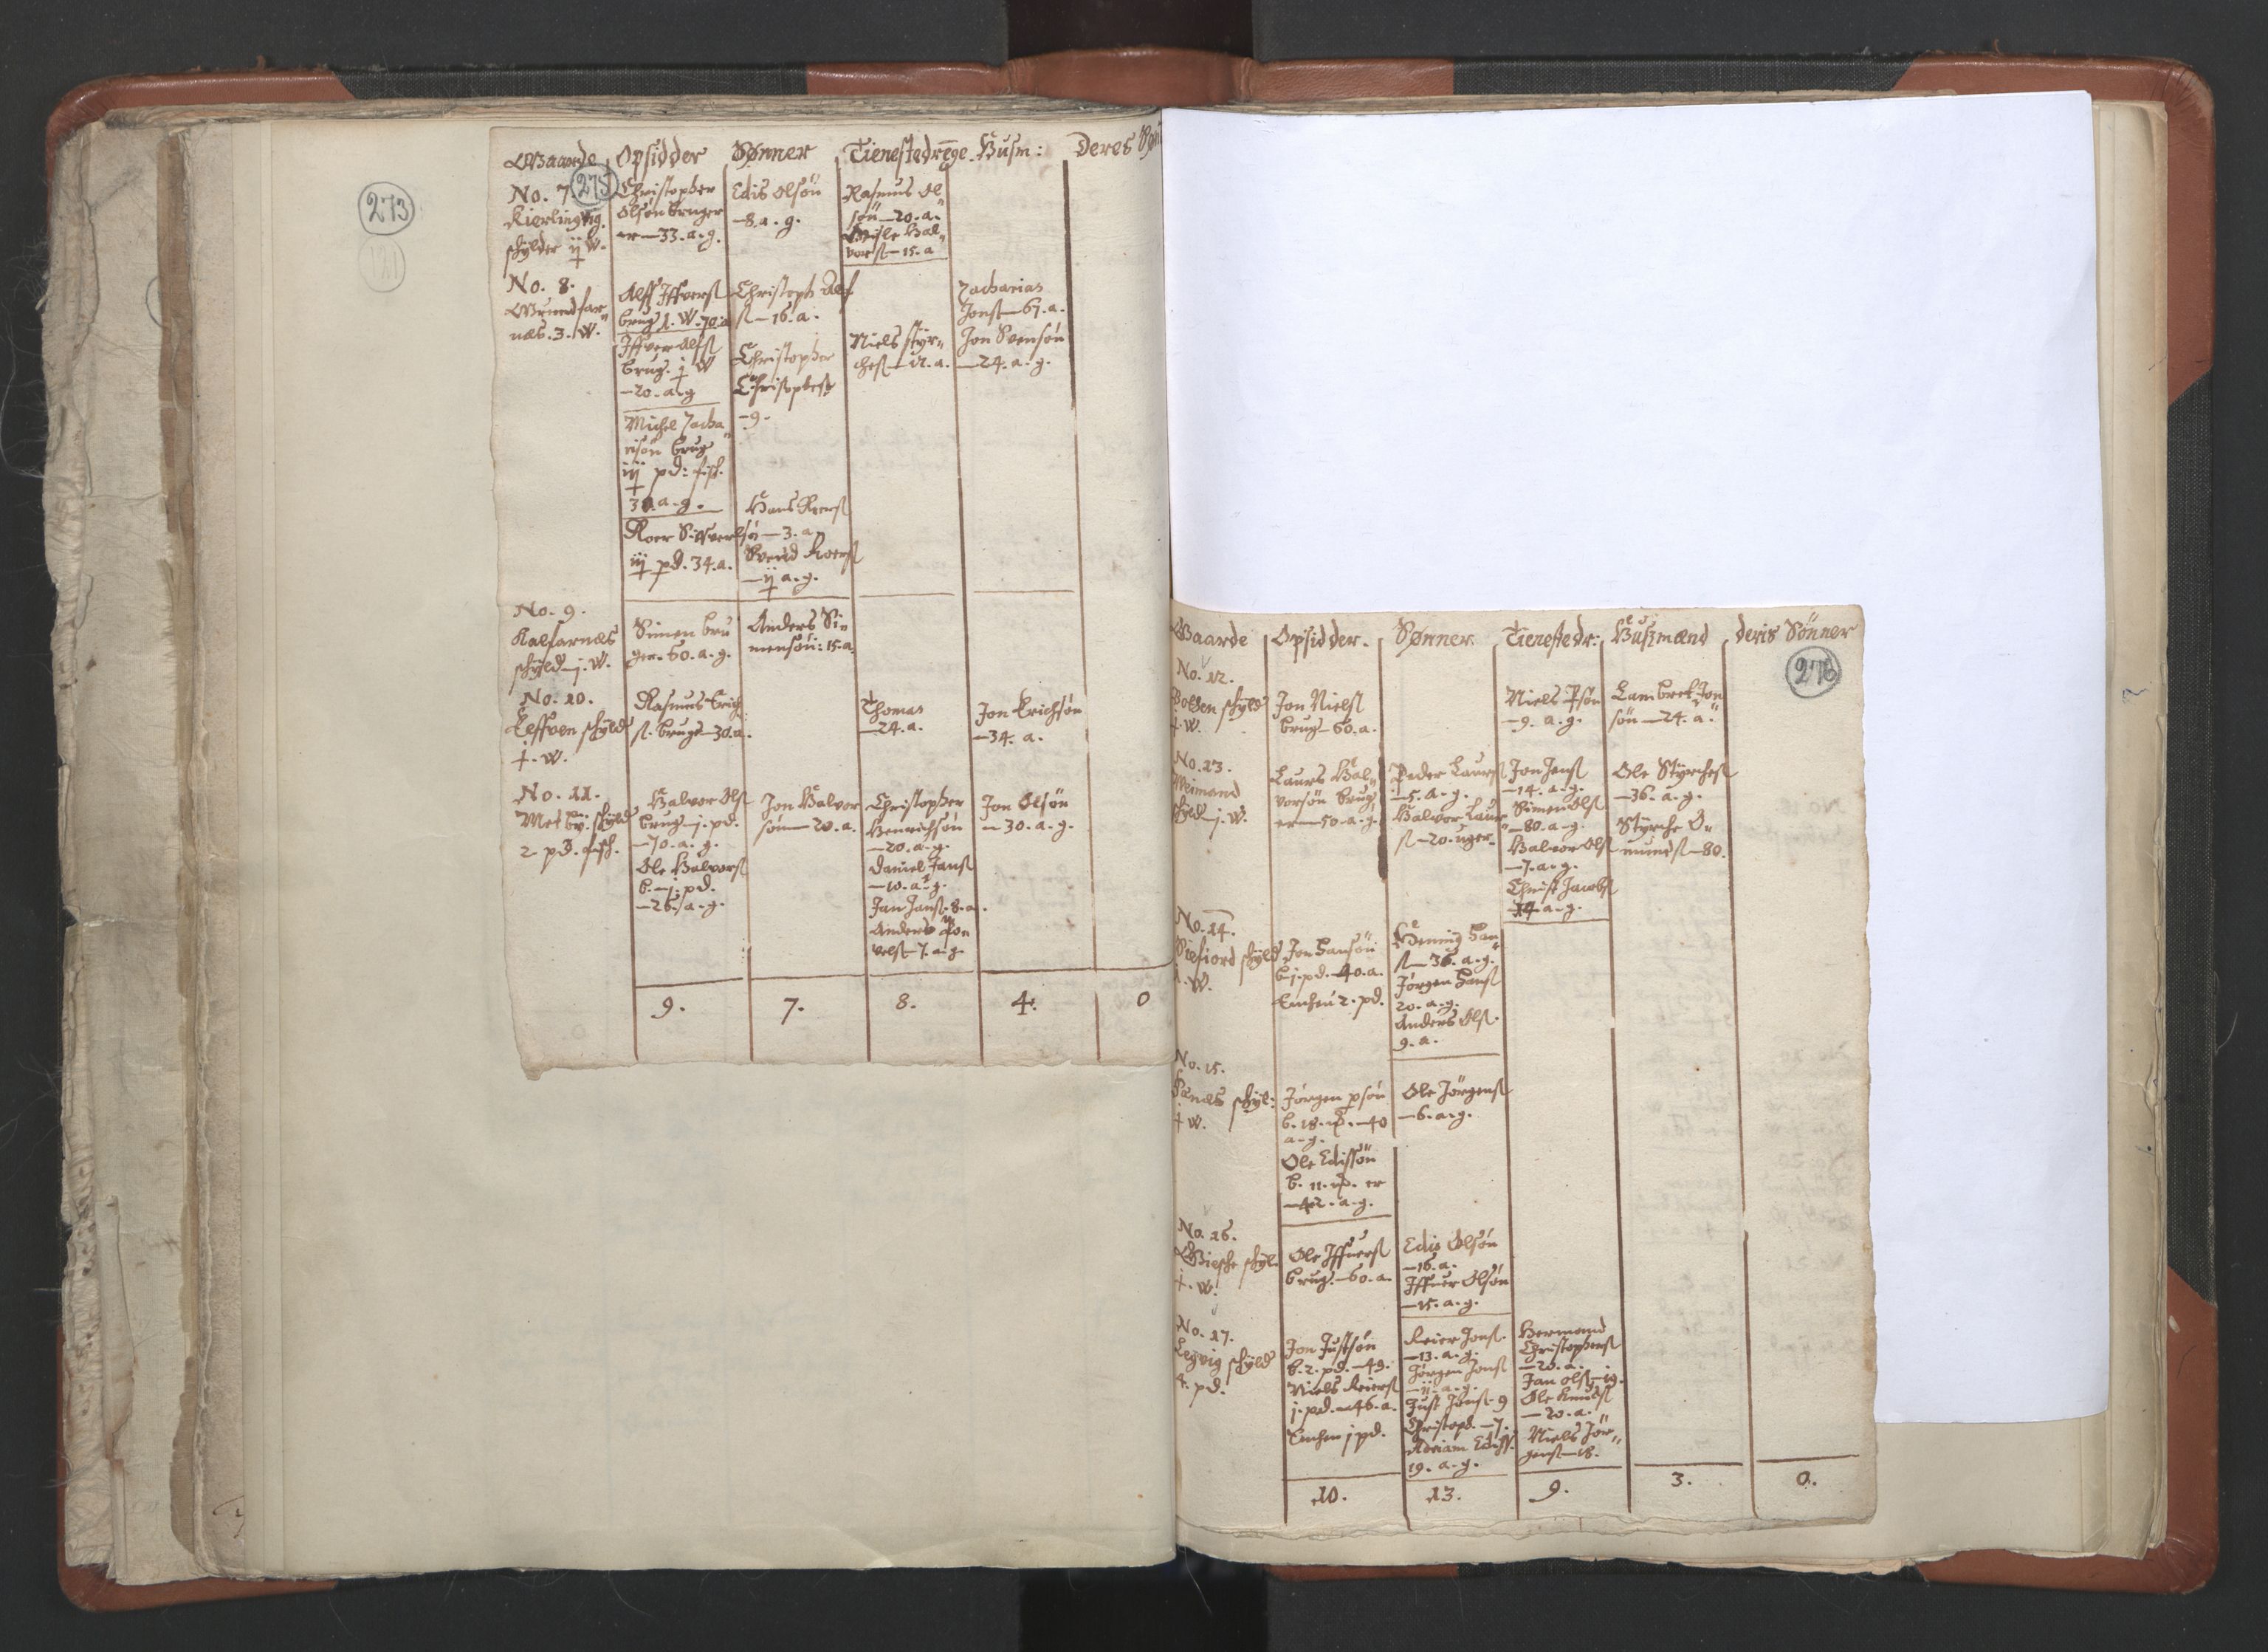 273
121
Gaarde Opsidder Sønner Tienestedrenge. Husm: Deres Søn
275
No. 7
Kierlingvig.
skylder ij W.
Christopher
Olsøn bruger
er—33. a. g.
Edis Olsøn
—8. a. g.
Rasmus Ol
søn—20. a.
Gisle Hal„
vors—15. a
No. 8.
Grundfar„
næs. 3. W.
Alff Iffvers
brug 1. W. 70. a
Iffver Alfs
brug. j W
—20. a. g
Michel Zacha„
risøn brug
iij pd: fisk.
30. a. g.
Roer Siffversøn
iij pd. 34. a.
Christoph Alf
s—16. a.
Christopher
Christophers
—9.
Hans Roers
—3. a.
Svend Roers
—ij a. g.
Niels Styr„
ches—12. a.
Zacharias
Jons—67. a.
Jon Svensøn
—24. a. g.
No. 9.
Kalfarnæs
skyld—j. W.
Simen bru
ger. 60. a. g.
Anders Si„
mensøn: 15. a.
No. 10.
Elffven skyld
W.
Rasmus Erich
s. bruge—30. a.
Thomas
—24. a.
Jon Erichsøn
—34. a.
No. 11.
Metby. skyld
2 pd. fisk.
Halvor Ols
brug—j. pd.
—70. a. g.
Ole Halvors
b.—j. pd.
—26. a. g.
Jon Halvor
søn—20. a.
Christopher
Henrichsøn
—20. a. g.
Daniel Jans
—10. a. g.
Jan Jans. 8. a.
Anders Po
vels—7. a. g.
Jon Olsøn
—30. a. g.
9. 7. 8. 4. 0
Gaarde Opsidder. Sønner Tienestedr: Hußmænd deris Sønner
276
No. 12.
skyld
W.
Jon Niels
brug—60. a.
Niels Psøn
—9. a. g.
Lambret Jon
søn—24. a.
No. 13.
Meimand
skyld—j. W.
Laurs Hal„
vorsøn brug
er—50. a. g.
Peder Laurs
—5. a. g.
Halvor Laur
s—20. uger.
Jon Jens
—14. a. g.
Simen Ols
—80. a. g.
Halvor Ols
—7. a. g.
Christ Jacobs
14. a. g.
Ole Styrches
—36. a. g.
Styrche O„
munds—80.
No. 14.
skyld
1. W.
Jon Hansøn
b j. pd.—40. a.
Enchen 2. pd.
Hening Han
s—36. a. g.
Jørgen Hans
20. a. g.
Anders Ols.
9. a.
No. 15.
skyl:
W.
Jørgen Psøn
b. 18. —40
a. g.
Ole Edissøn
b. 11. er
—42. a. g.
Ole Jørgens
—6. a. g.
No. 16.
Giesche skyl.
W.
Ole Iffuers
brug.—60. a.
Edis Olsøn
—16. a.
Iffuer Olsøn
—15. a. g.
No. 17.
Legvig skyld
4. pd.
Jon Justsøn
b. 2. pd.—49.
Niels Reiers
j. pd.—46. a.
Enchen j pd.
Reier Jons.
—13. a. g.
Jørgen Jons
—ij. a. g.
Just Jons. 9
Christoph.—7.
Adrian Ediss.
19. a. g.
Hermand
Christophers
—20. a.
Jan Ols—19.
Ole Knuds
—20. a.
Niels Jør„
gens—18.
10. 13. 9. 3. 0.